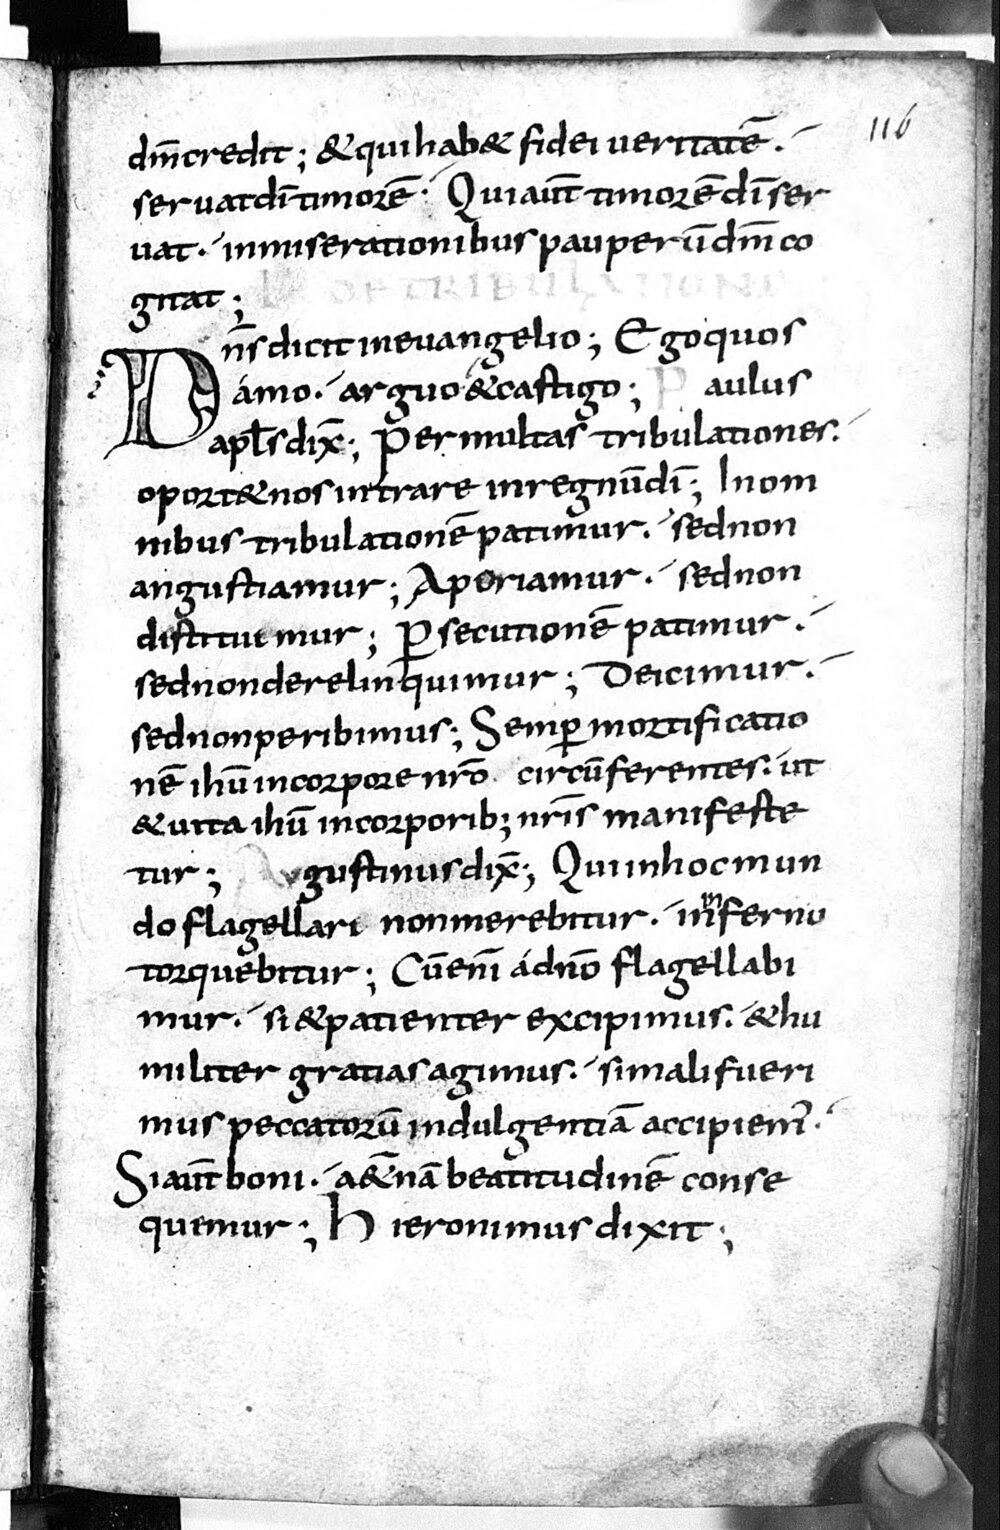 116
dm̄ credit; & qui hab& fidei veritatē.
servat dī timorē. Qui aut̄ timorē dī ser
vat. in miserationibus pauperū dm̄ co
gitat;
DE TRIBULATIONE
Dn̄s dicit in evangelio; Ego quos
amo. arguo & castigo; Paulus
apl̄s dix̄; Per multas tribulationes.
oport& nos intrare in regnū dī; In om
nibus tribulationē patimur. sed non
angustiamur; Aporiamur. sed non
distituimur; ꝑsecutionē patimur.
sed non derelinquimur; Deicimur.
sed non peribimus; Semꝑ mortificatio
nē ihū in corpore nr̄o circūferentes. ut
& vita ihū in corporib; nr̄is manifeste
tur; Augustinus dix̄; Qui in hoc mun
do flagellari non merebitur. in inferno
torquebitur; Cū enī a dn̄o flagellabi
mur. si & patienter excipimus. & hu
militer gratias agimus. si mali fueri
mus peccatorū indulgentiā accipiem̄.
Si aut̄ boni. a&̄nā beatitudinē conse
quemur; Hieronimus dixit;